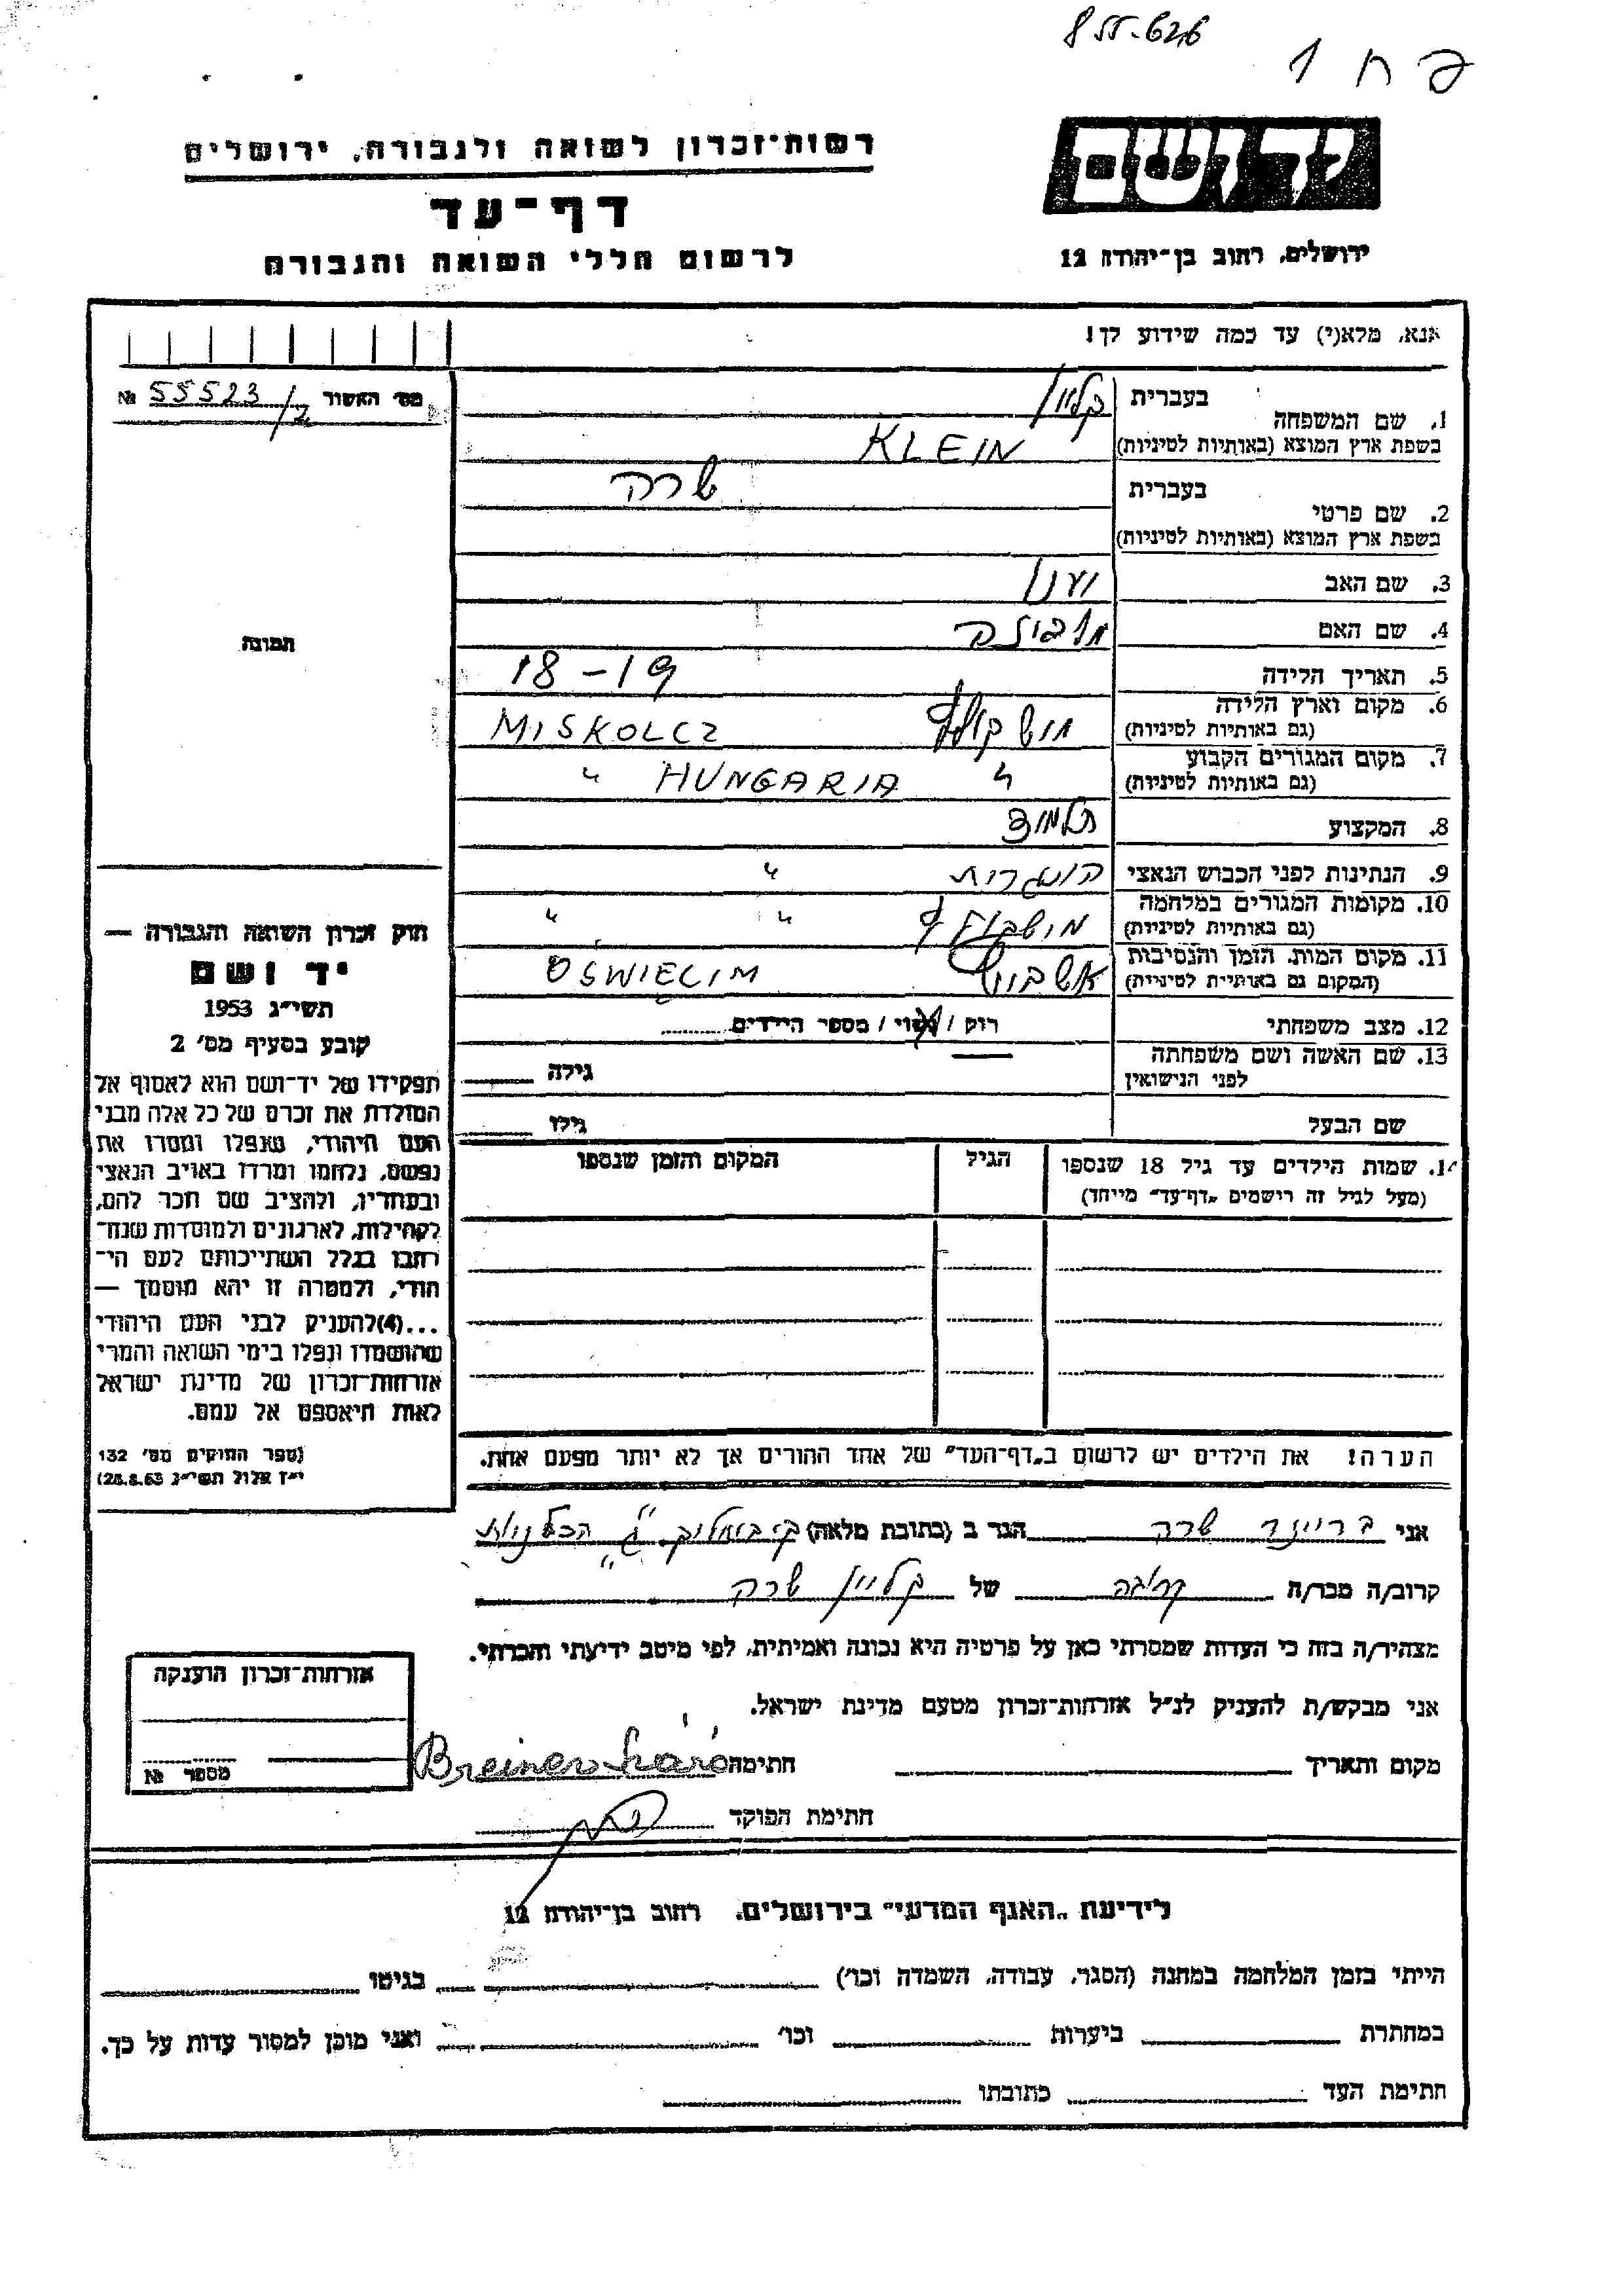 855-626
פ ח 1
יד ושם
ירושלים, רחוב בן־יהודה 12
רשות־זכרון לשואה ולגבורה, ירושלים
דף־עד
לרשום חללי השואה והגבורה
אנא, מלא(י) עד כמה שידוע לך!
מס׳ האשור 55523/2 №
1. שם המשפחה בעברית קליין
בשפת ארץ המוצא (באותיות לטיניות) KLEIN
2. שם פרטי בעברית שרה
בשפת ארץ המוצא (באותיות לטיניות)
3. שם האב
4. שם האם
5. תאריך הלידה 18-19
6. מקום וארץ הלידה (גם באותיות לטיניות) מישקולץ MISKOLCZ
7. מקום המגורים הקבוע (גם באותיות לטיניות) " HUNGARIA "
8. המקצוע
9. הנתינות לפני הכבוש הנאצי הונגרית "
10. מקומות המגורים במלחמה (גם באותיות לטיניות) מישקולץ " "
11. מקום המות, הזמן והנסיבות (המקום גם באותיות לטיניות) אושביץ OŚWIĘCIM
12. מצב משפחתי רוק / נשוי / מספר הילדים
13. שם האשה ושם משפחתה לפני הנישואין גילה
שם הבעל גילו
14. שמות הילדים עד גיל 18 שנספו (מעל לגיל זה רישמים „דף־עד" מייחד) הגיל המקום והזמן שנספו
הערה! את הילדים יש לרשום ב„דף־העד" של אחד ההורים אך לא יותר מפעם אחת.
תמונה
חוק זכרון השואה והגבורה —
יד ושם
תשי״ג 1953
קובע בסעיף מס׳ 2
תפקידו של יד־ושם הוא לאסוף אל
המולדת את זכרם של כל אלה מבני
העם היהודי, שנפלו ומסרו את
נפשם, נלחמו ומרדו באויב הנאצי
ובעוזריו, ולהציב שם וזכר להם,
לקהילות, לארגונים ולמוסדות שנח־
רבו בגלל השתייכותם לעם הי־
הודי, ולמטרה זו יהא מוסמך —
...(4)להעניק לבני העם היהודי
שהושמדו ונפלו בימי השואה והמרי
אזרחות־זכרון של מדינת ישראל
לאות היאספם אל עמם.
(ספר החוקים מס׳ 132
י״ז אלול תשי״ג 28.8.53)
אני בריינר שרה הגר ב (כתובת מלאה) ק. ביאליק, ג" הכלניות
קרוב/ה מכר/ה קרובה של קליין שרה
מצהיר/ה בזה כי העדות שמסרתי כאן על פרטיה היא נכונה ואמיתית, לפי מיטב ידיעתי והכרתי.
אני מבקש/ת להעניק לנ״ל אזרחות־זכרון מטעם מדינת ישראל.
מקום ותאריך חתימה Breiner Sáró
חתימת הפוקד
אזרחות־זכרון הוענקה
מספר №
לידיעת „האגף המדעי" בירושלים, רחוב בן־יהודה 12
הייתי בזמן המלחמה במחנה (הסגר, עבודה, השמדה וכו׳) בגיטו
במחתרת ביערות וכו׳ ואני מוכן למסור עדות על כך.
חתימת העד כתובתו